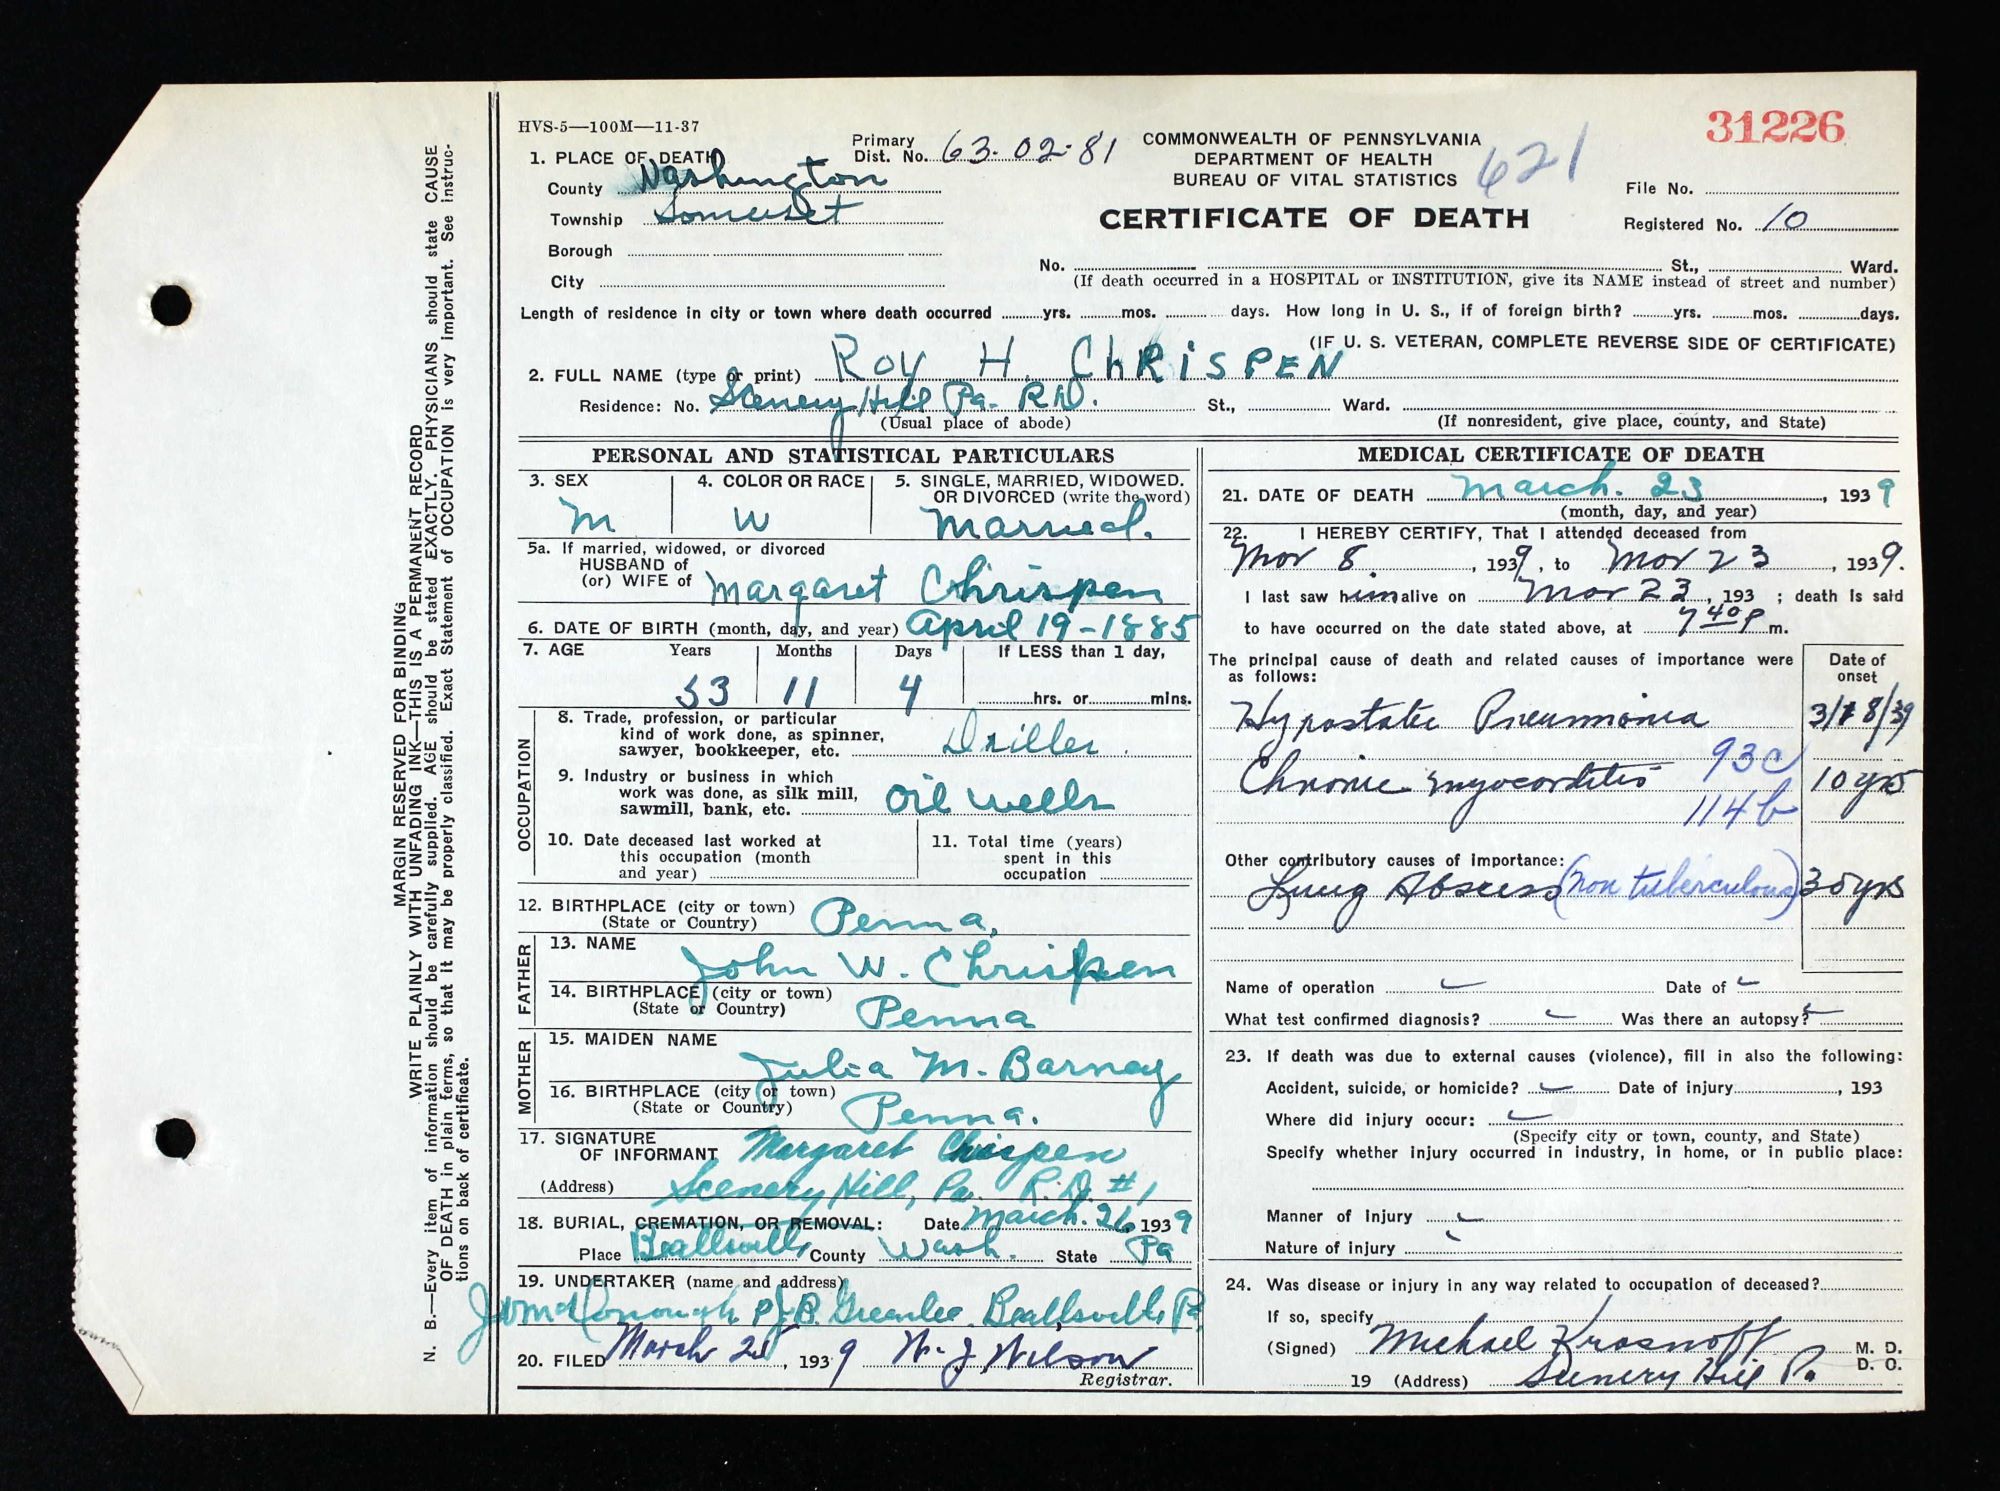 HVS-5—100M—11-37
31226
Primary Dist. No. 63-02-81
COMMONWEALTH OF PENNSYLVANIA
DEPARTMENT OF HEALTH
BUREAU OF VITAL STATISTICS
621
CERTIFICATE OF DEATH
File No.
Registered No. 10
1. PLACE OF DEATH
County Washington
Township Somerset
Borough
City
No. St., Ward.
(If death occurred in a HOSPITAL or INSTITUTION, give its NAME instead of street and number)
Length of residence in city or town where death occurred yrs. mos. days. How long in U. S., if of foreign birth? yrs. mos. days.
(IF U. S. VETERAN, COMPLETE REVERSE SIDE OF CERTIFICATE)
2. FULL NAME (type or print) ROY H. ChRiSPEN
Residence: No. Scenery Hill Pa. R.D. St., Ward.
(Usual place of abode)
(If nonresident, give place, county, and State)
PERSONAL AND STATISTICAL PARTICULARS
3. SEX
M
4. COLOR OR RACE
W
5. SINGLE, MARRIED, WIDOWED.
OR DIVORCED (write the word)
Married.
5a. If married, widowed, or divorced
HUSBAND of
(or) WIFE of Margaret Chrispen
6. DATE OF BIRTH (month, day, and year) April 19-1885
7. AGE Years Months Days If LESS than 1 day,
53 11 4 hrs. or mins.
OCCUPATION
8. Trade, profession, or particular
kind of work done, as spinner,
sawyer, bookkeeper, etc. Driller.
9. Industry or business in which
work was done, as silk mill,
sawmill, bank, etc. Oil wells
10. Date deceased last worked at
this occupation (month
and year)
11. Total time (years)
spent in this
occupation
12. BIRTHPLACE (city or town)
(State or Country) Penna,
FATHER
13. NAME John W. Chrispen
14. BIRTHPLACE (city or town)
(State or Country) Penna
MOTHER
15. MAIDEN NAME Julia M. Barnay
16. BIRTHPLACE (city or town)
(State or Country) Penna.
17. SIGNATURE
OF INFORMANT Margaret Chrispen
(Address) Scenery Hill, Pa. R.D. #1
18. BURIAL, CREMATION, OR REMOVAL: Date March. 26 1939
Place Beallsville County Wash. State Pa
19. UNDERTAKER (name and address)
J.B. Greenlee. Beallsville Pa.
20. FILED March 25, 1939 W. J. Wilson
Registrar.
MEDICAL CERTIFICATE OF DEATH
21. DATE OF DEATH March. 23, 1939
(month, day, and year)
22. I HEREBY CERTIFY, That I attended deceased from
Mar 8, 1939, to Mar 23, 1939.
I last saw him alive on Mar 23, 193 ; death is said
to have occurred on the date stated above, at 7 40 P m.
The principal cause of death and related causes of importance were
as follows:
Date of
onset
Hypostatic Pneumonia 3/18/39
93c
Chronic myocarditis 10 yrs
114b
Other contributory causes of importance:
Lung Abscess (non tuberculous) 30 yrs
Name of operation Date of
What test confirmed diagnosis? Was there an autopsy?
23. If death was due to external causes (violence), fill in also the following:
Accident, suicide, or homicide? Date of injury , 193
Where did injury occur:
(Specify city or town, county, and State)
Specify whether injury occurred in industry, in home, or in public place:
Manner of injury
Nature of injury
24. Was disease or injury in any way related to occupation of deceased?
If so, specify
(Signed) Michael Krasnoff M. D.
D. O.
19 (Address) Scenery Hill Pa.
MARGIN RESERVED FOR BINDING
WRITE PLAINLY WITH UNFADING INK—THIS IS A PERMANENT RECORD
N. B.—Every item of information should be carefully supplied. AGE should be stated EXACTLY. PHYSICIANS should state CAUSE
OF DEATH in plain terms, so that it may be properly classified. Exact Statement of OCCUPATION is very important. See instruc-
tions on back of certificate.